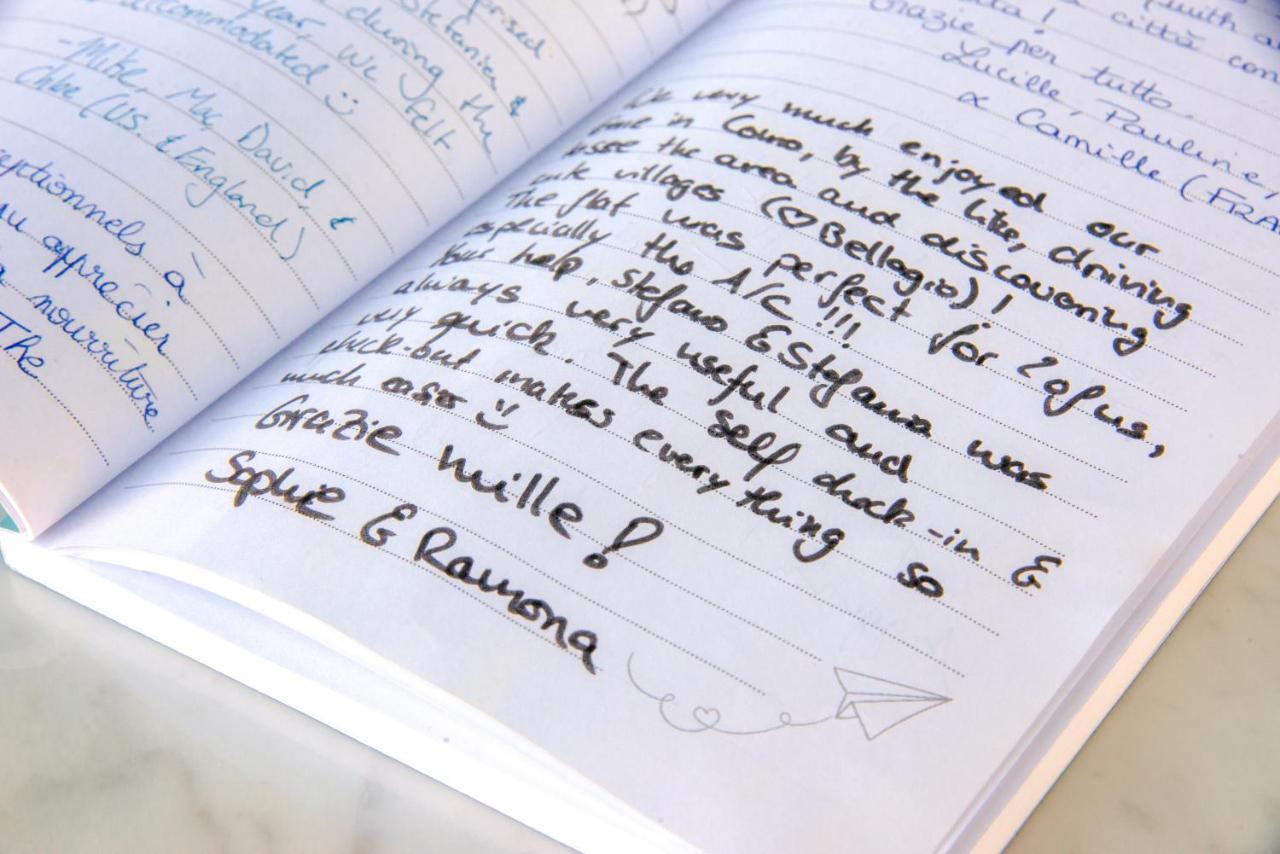 prised
Stefania &
during the
year, We felt
accommodated :)
-Mike, Mac, David, &
Chloe (US. & England)
à
apprécier
nourriture
The
città con
Grazie per tutto.
Lucille, Pauline,
& Camille (FRA
We very much enjoyed our
time in Como, by the like, driving
the area and discovering
villages (♡Bellagio)!
The flat was perfect for 2 of us,
especially the A/C !!!
Your help, Stefano & Stefania was
always very useful and
very quick. The self check-in &
check-out makes everything so
much easier :)
Grazie mille!
Sophie & Ramona